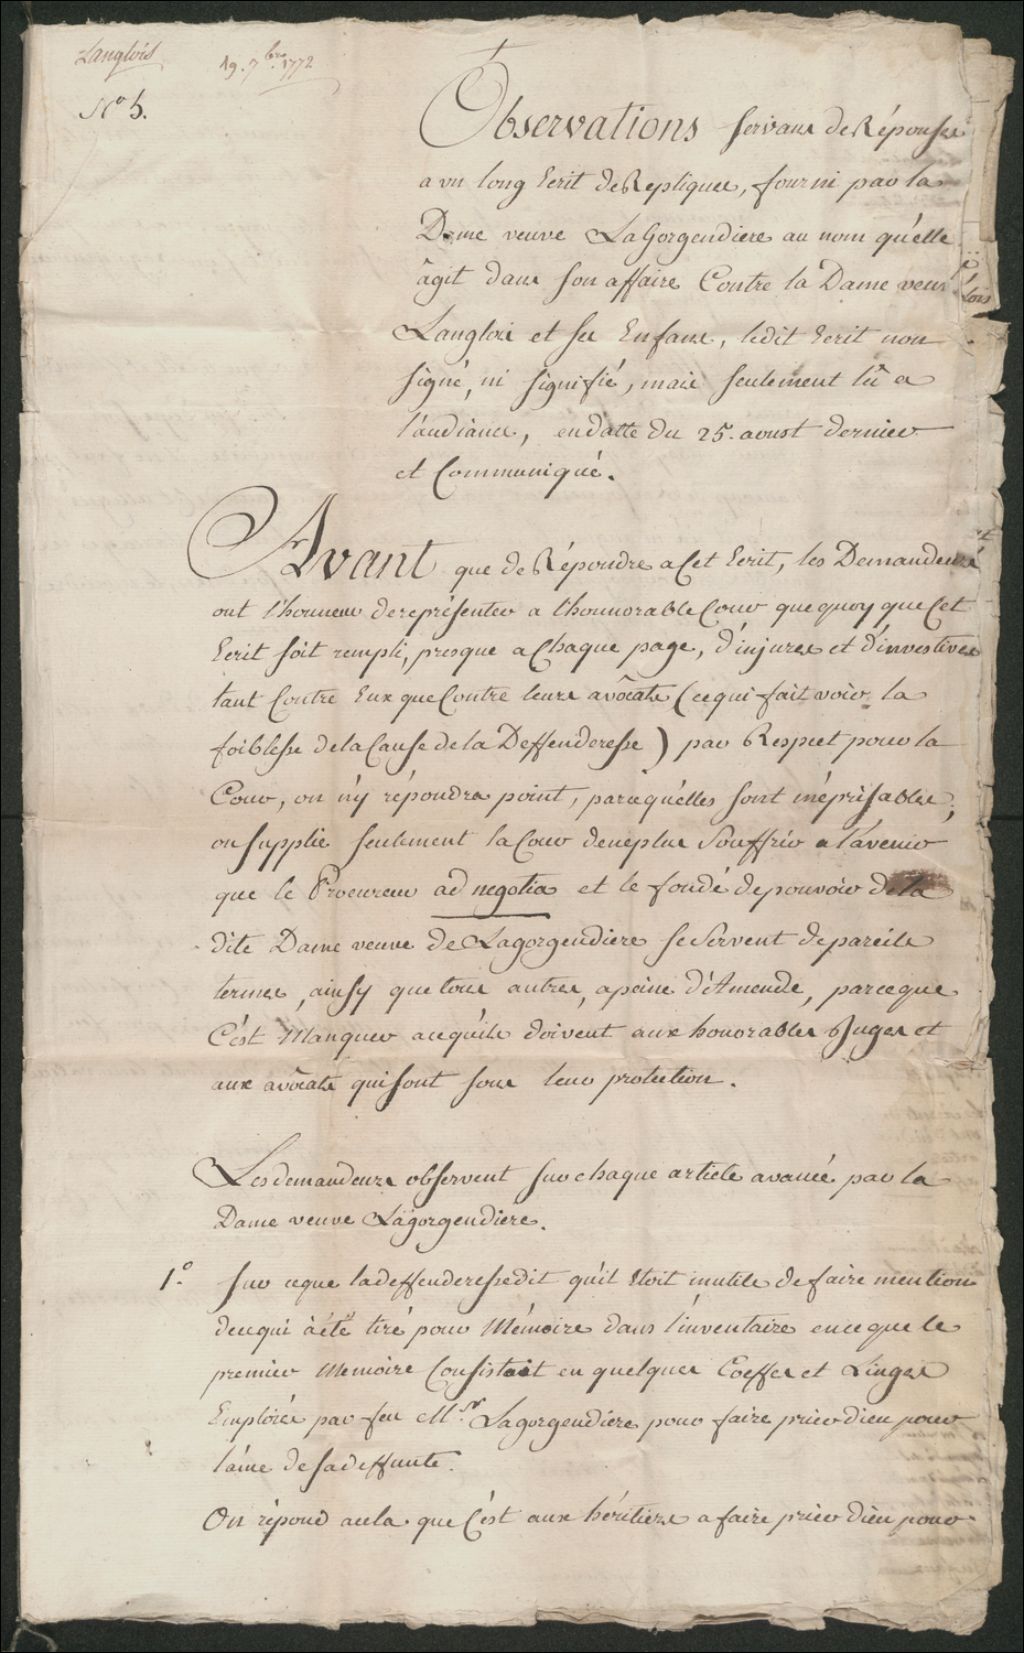 Langlois
19. 7bre. 1772
No 5.
Observations servans de Réponses
a un long Ecrit de Repliques, fourni par la
Dame veuve LaGorgendiere au nom qu'elle
âgit dans son affaire Contre la Dame veuve
Langlois et ses Enfans, ledit Ecrit non
signé, ni signifié, mais seulement lû a
l'audiance, en datte du 25. aoust dernier
et Communiqué.
Avant que de Répondre a Cet Ecrit, les Demandeurs
ont l'honneur de représenter a l'honnorable Cour que quoy que Cet
Ecrit soit rempli, presque a Chaque page, d'injures et d'investives
tant Contre Eux que Contre leurs avôcats (ce qui fait voir la
foiblesse de la Cause de la Deffenderesse) par Respect pour la
Cour, on n'y répondra point, parcequ'elles sont méprisables;
on supplie seulement la Cour de ne plus Souffrir a l'avenir
que le Procureur ad negotia et le fondé de pouvoir de la
dite Dame veuve de Lagorgendiere se Servent de pareils
termes, ainsy que tous autres, a peine d'Amende, parceque
C'est Manquer a ce qu'ils doivent aux honorables Juges et
aux avôcats qui sont sous leur protection.
Les demandeurs observent sur chaque article avancé par la
Dame veuve Lagorgendiere.
1.° Sur ce que la deffenderesse dit qu'il Etoit inutile de faire mention
de ce qui à été tiré pour Mémoire dans l'inventaire en ce que le
premier Memoire Consistait en quelques Coeffes et Linges
Emploiés par feu Mr. Lagorgendiere pour faire prier dieu pour
l'ame de sa deffunte.
On répond a cela que C'est aux héritiers a faire prier dieu pour